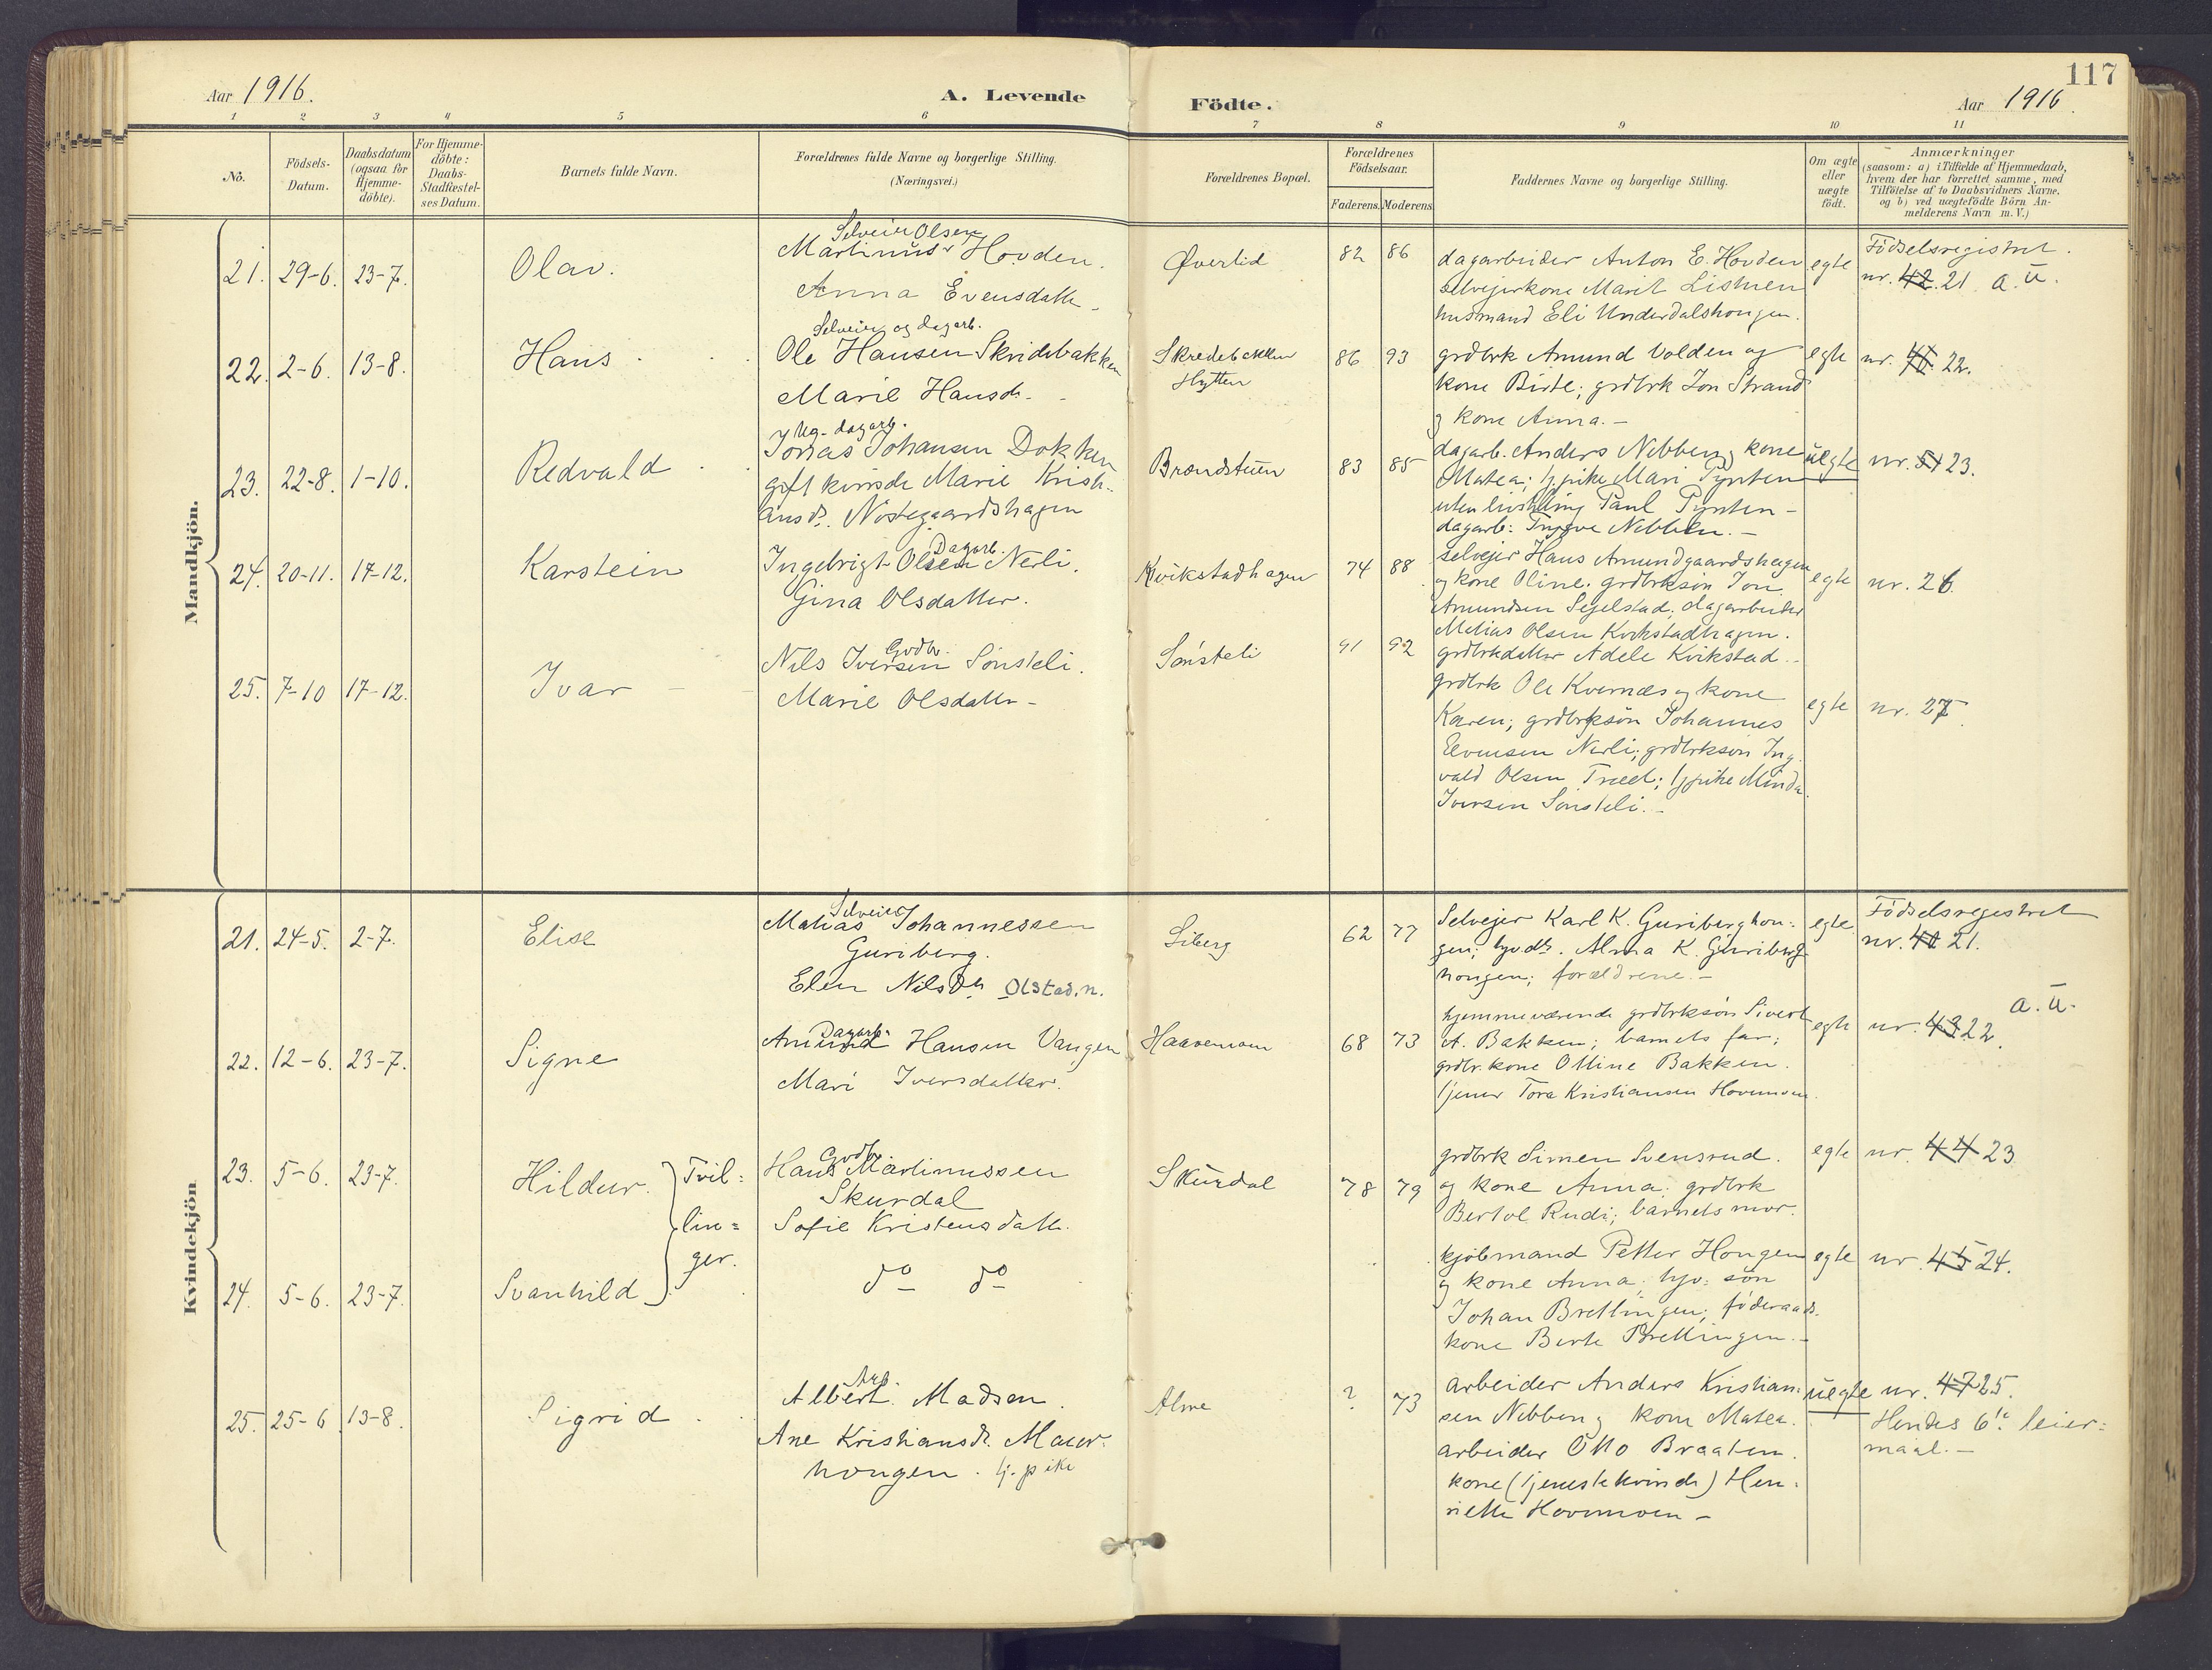 117
Aar 1916.
A. Levende Födte.
Aar 1916.
1 2 3 4 5 6 7 8 9 10 11
No.
Födsels-Datum.
Daabsdatum (ogsaa for Hjemme-döbte).
For Hjemme-döbte: Daabs-Stadfæstel-ses Datum.
Barnets fulde Navn.
Forældrenes fulde Navne og borgerlige Stilling.
(Næringsvei.)
Forældrenes Bopæl.
Forældrenes Födselsaar.
Faderens. Moderens.
Faddernes Navne og borgerlige Stilling.
Om ægte eller uægte födt.
Anmærkninger
(saasom: a) i Tilfælde af Hjemmedaab,
hvem der har forrettet samme, med
Tilföielse af to Daabsvidners Navne.
og b) ved uægtefödte Börn An-
melderens Navn m. V.)
Mandkjön.
21. 29-6. 23-7. Olav.
Selveier Olsen
Martinus Hovden.
Anna Evensdatter
Øverlid 82 86
dagarbeider Anton E. Hovden
selvejerkone Marit Listuen
husmand Eli Underdalshongen.
egte
Födselsregistret.
nr. 42. 21 a. u.
22. 2-6. 13-8. Hans
Selveier og dagarb.
Ole Hansen Skridebakken
Marie Hansdr.
Skredebakken
Hytten
86 93
grdbrk Amund Volden og
kone Birte; grdbrk Jon Strand
og kone Anna.-
egte nr. 22.
23. 22-8. 1-10. Redvald
Ug. dagarb.
Jonas Johansen Dokken
gift kvinde Marie Kristi-
ansdr. Nostegaardshagen
Brændstuen 83 85
dagarb. Anders Nebben og kone
Matea; tj.pike Mari Pynten
uten livstilling Paul Pynten -
dagarb. Nebben.-
uegte nr. 51 23.
24. 20-11. 17-12. Karstein
Dagarb.
Ingebrigt Olsen Nerli.
Gina Olsdatter.
Kvikstadhagen 74 88
selvejer Hans Amundgaardshagen
og kone Oline; grdbrksön Jon
Amundsen Segelstad; dagarbeider
Matias Olsen Kvikstadhagen.
grdbrkdatter Adele Kvikstad.
egte nr. 26.
25. 7-10 17-12. Ivar
Grdbr.
Nils Iversen Sönsteli.
Marie Olsdatter -
Sönsteli 91 92
grdbrk Ole Kvernæs og kone
Karen; grdbrksön Johannes
Evensen Nerli; grdbrksön Ing-
vald Olsen Træet; tj.pike Minda
Iversen Sönsteli.-
egte nr. 27.
Kvindekjön
21. 24-5. 2-7. Elise
Selveier
Matias Johannessen
Guriberg.
Elen Nilsdtr Olstad. n.
Liberg 62 77
Selvejer Karl K. Guriberghon-
gen; tjvdtr. Alma K. Guriberg-
hongen; forældrene.-
egte
Födselsregistret
nr. 41 21.
a. u.
22. 12-6. 23-7. Signe
Dagarb.
Amund Hansen Vangen
Mari Iversdatter.
Haavemoen 68 73
hjemmeværende grdbrksön Sivert
A. Bakken; barnets far;
grdbr.kone Olline Bakken.
tjener Tora Kristiansen Hovemoen.
egte nr. 43 22.
23. 5-6. 23-7. Hildur. Tvil-
lin-
ger.
Grdbr
Hans Martinussen
Skurdal
Sofie Kristensdatter.
Skurdal 78 79
grdbrk Simen Svensrud.
og kone Anna; grdbrk
Bertol Rudi; barnets mor.
egte nr. 44 23
24. 5-6. 23-7. Svanhild
do do
kjöbmand Petter Hongen
og kone Anna; tjv: sön
Johan Brettingen; föderaads-
kone Berte Brettingen.-
egte nr. 45 24.
25. 25-6 13-8. Sigrid
Arb.
Albert Madsen.
Ane Kristiansdr. Maur-
hongen. tj.pike
Alme ? 73
arbeider Anders Kristian-
sen Nebben og kone Matea.
arbeider Otto Braaten.
kone (tjenestekvinde) Hen-
riette Hovemoen -
uegte nr. 47 25.
Hendes 6te leier-
maal.-